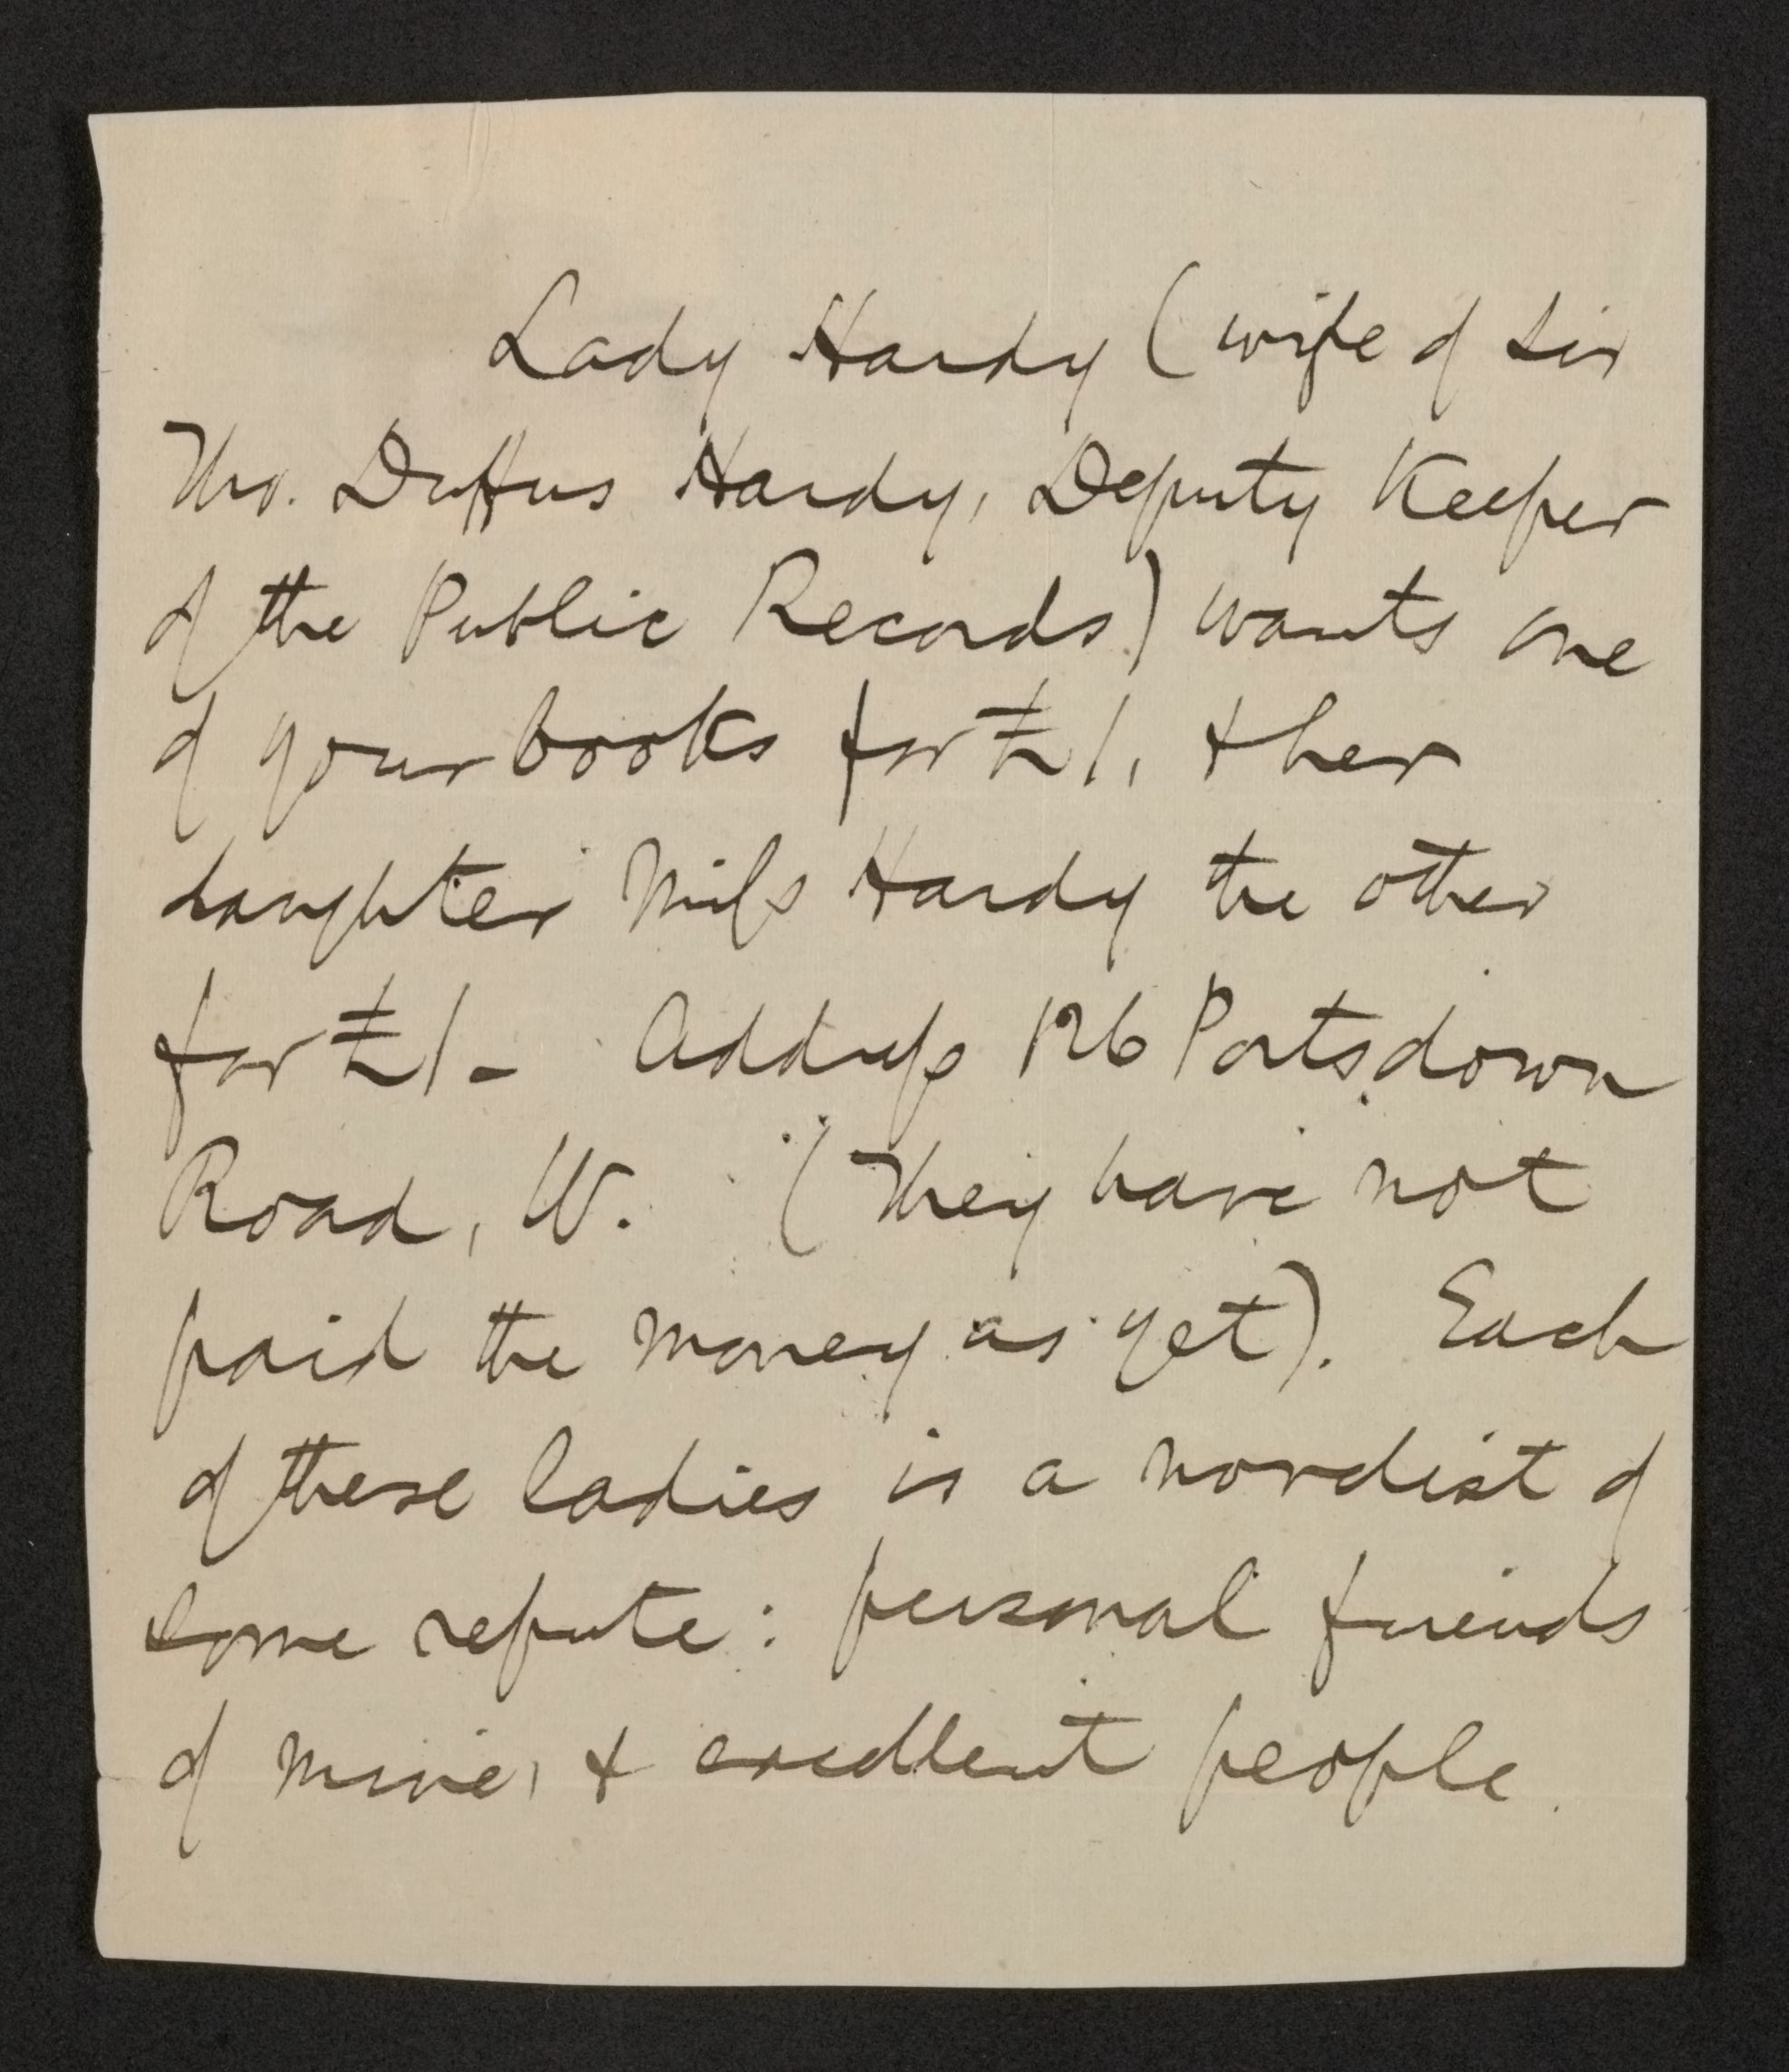 Lady Hardy (wife of Sir
Tho. Duffus Hardy, Deputy Keeper
of the Public Records) wants one
of your books for £1, & her
daughter Miss Hardy the other
for £1 - Address 126 Portsdown
Road, W. (They have not
paid the money as yet). Each
of these ladies is a novelist of
some repute: personal friends
of mine, & excellent people.